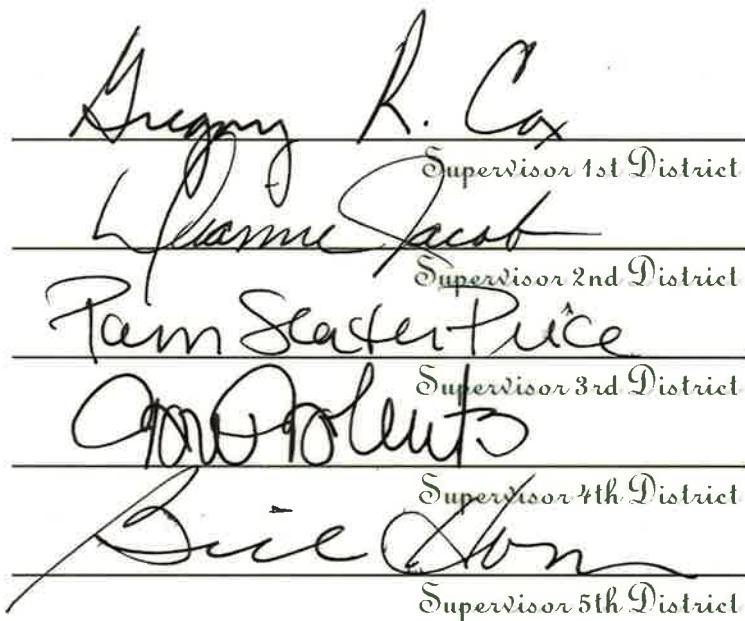 Gregory R. Cox
Supervisor 1st District
Dianne Jacob
Supervisor 2nd District
Pam Slater-Price
Supervisor 3rd District
Ron Roberts
Supervisor 4th District
Bill Horn
Supervisor 5th District